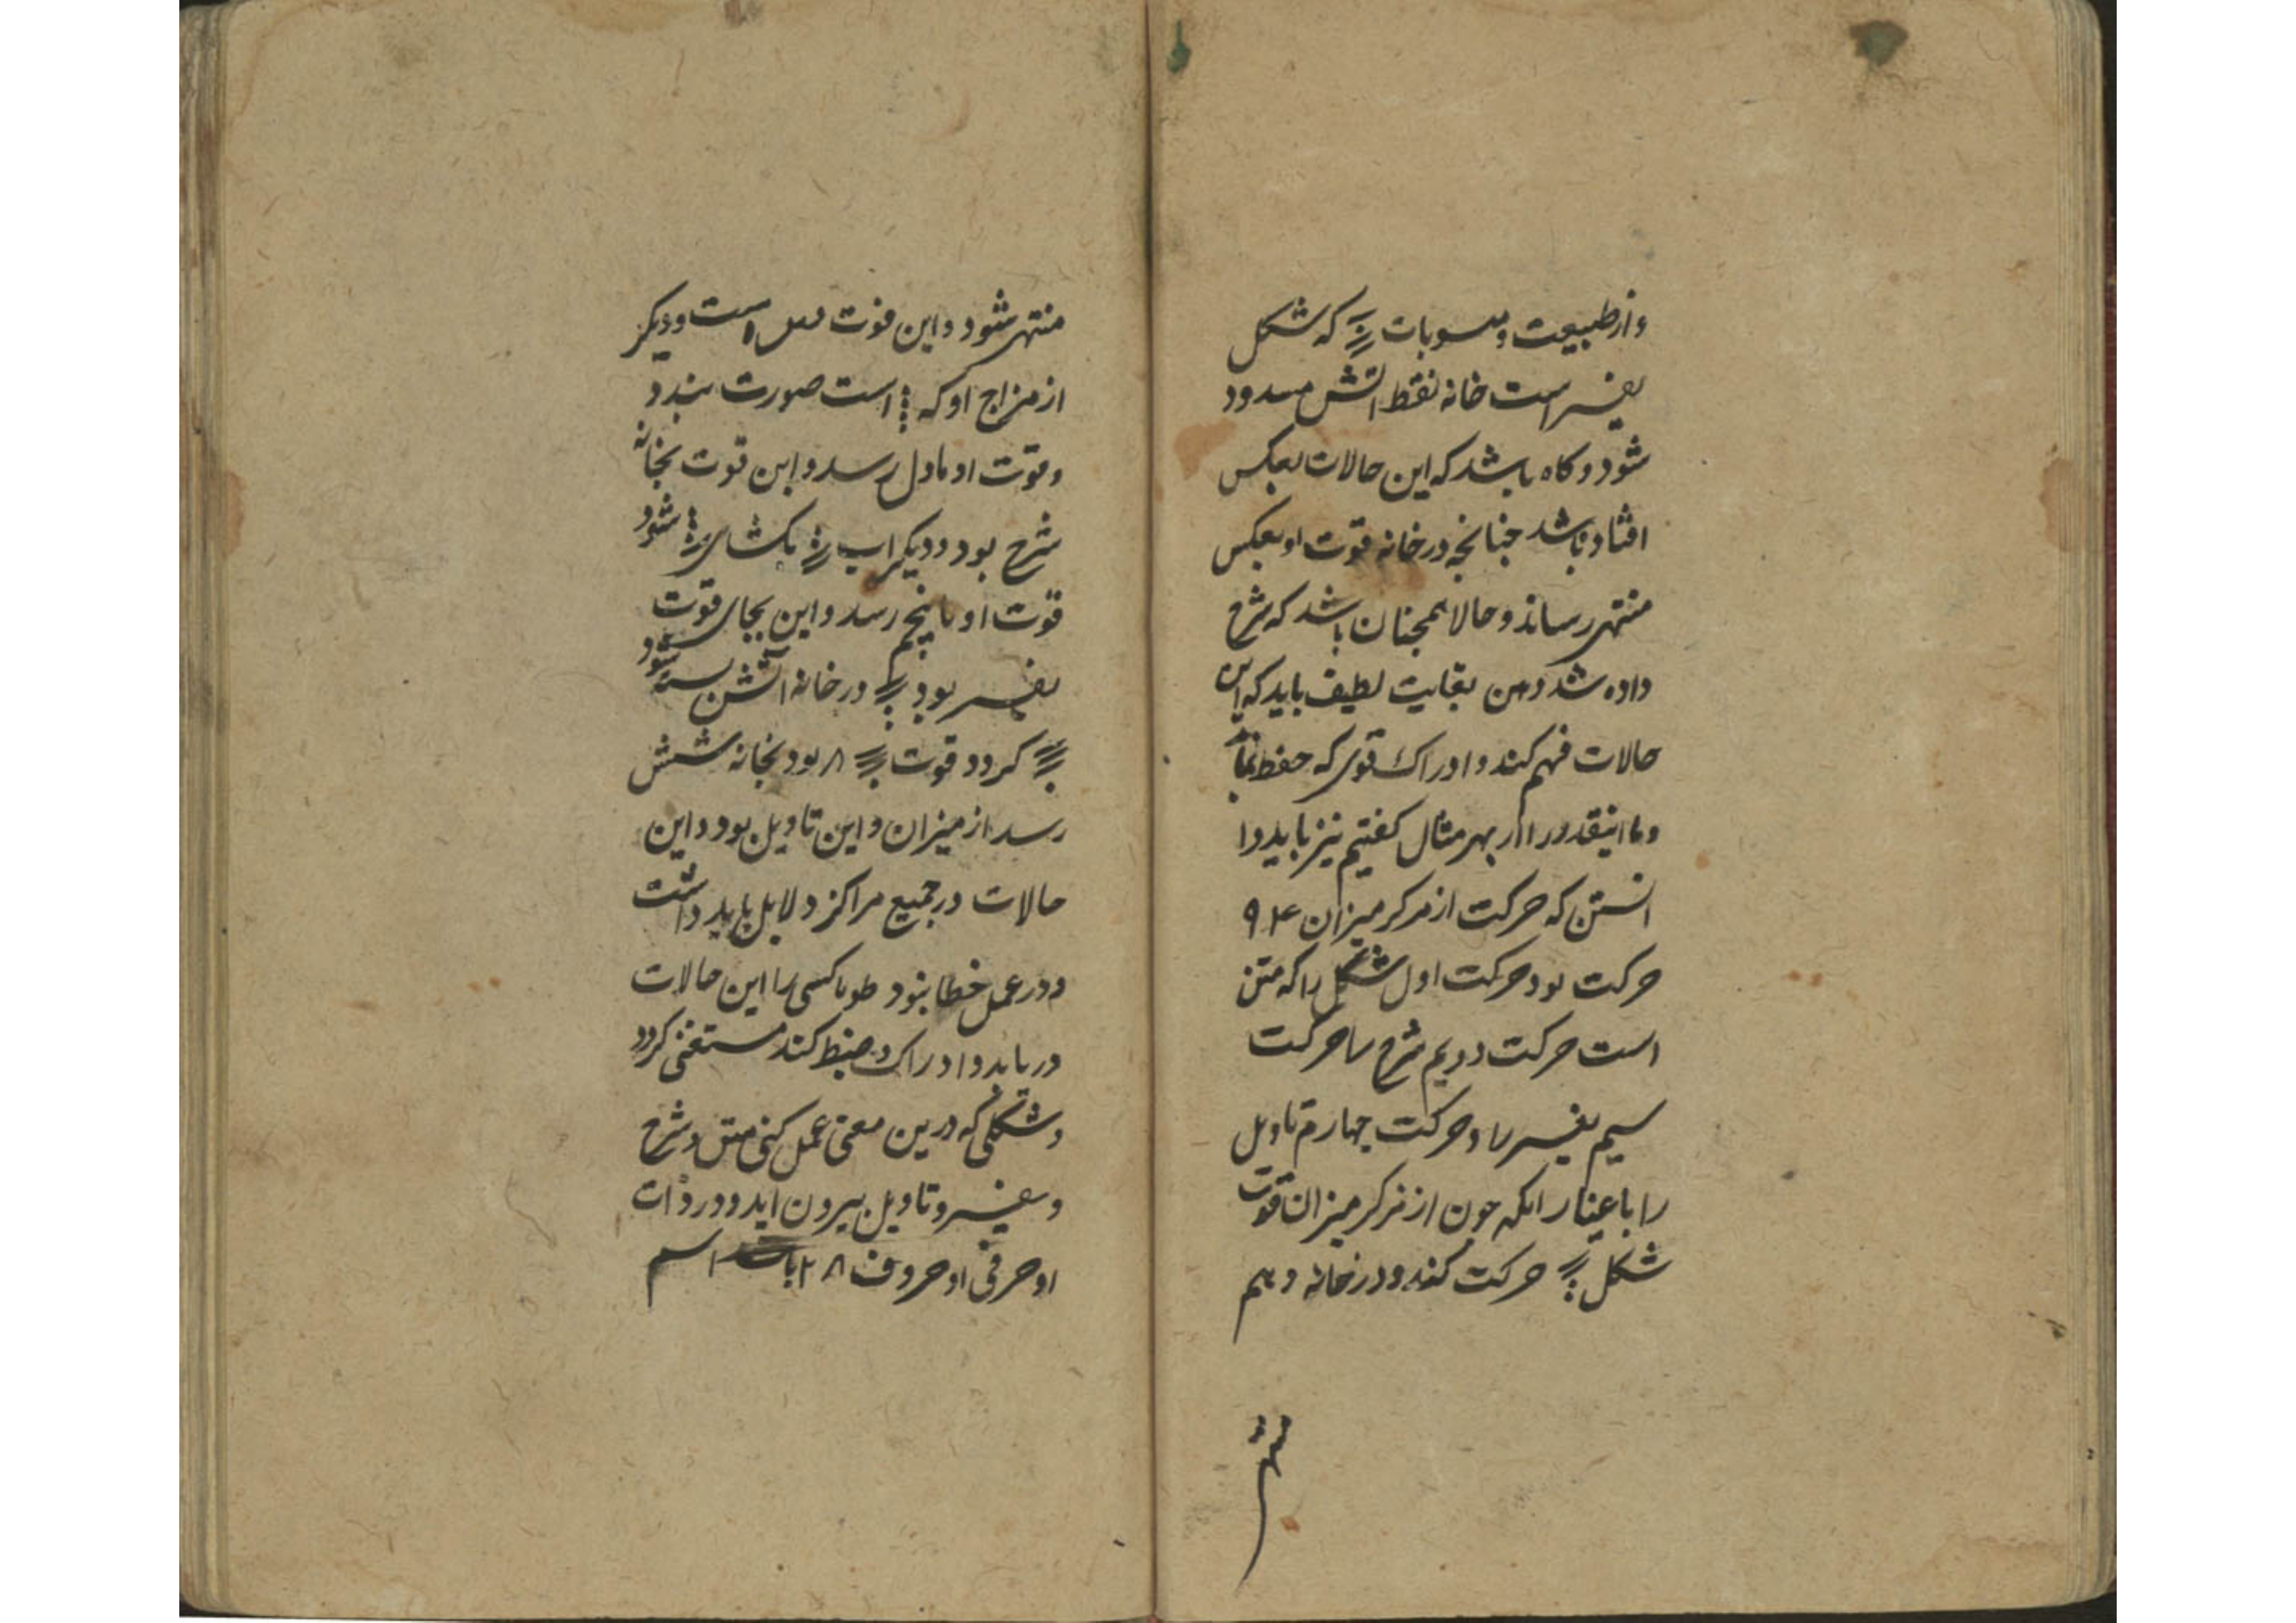 و از طبیعت و منسوبات که شکل
تفسیر است خانه نقط اتش مسدود
شود و کاه باشد که این حالات بعکس
افتاده باشد جنانجه در خانه قوت او بعکس
منتهی رساند و حالا همجنان باشد که شرح
داده شد و بغایت لطیف باید که این
حالات فهم کند و ادراک قوی که حفظ نماید
و ما اینقدر را از بهر مثال کفتیم نیز باید دا
انستن که حرکت از مرکز میزان
حرکت بود حرکت اول شکل را که متن
است حرکت دویم شرح را حرکت
سیم تفسیر را و حرکت جهارم تاویل
را باعتبار انکه جون از مرکز میزان قوت
شکل حرکت کند و در خانه دهم
منتهی
منتهی شود و این قوت است و دیکر
از مزاج او که است صورت بندد
و قوت او باول رسد و این قوت بخانه
شرح بود و دیکر اب بکشای شود
قوت او بابنجم رسد و این بجای قوت
تفسیر بود در خانه آتش بسته شود
کردد قوت ۸ بود بخانه شش
رسد از میزان و این تاویل بود و این
حالات در جمیع مراکز دلایل باید داشت
و در عمل خطا نبود طوبا کسی را این حالات
دریابد و ادراک و ضبط کند مستغنی کردد
و شکلی که درین معنی عمل کنی متن و شرح
و تفسیر و تاویل بیرون اید و در ذات
او حرفی او حروف ۲۸ باشد اسم